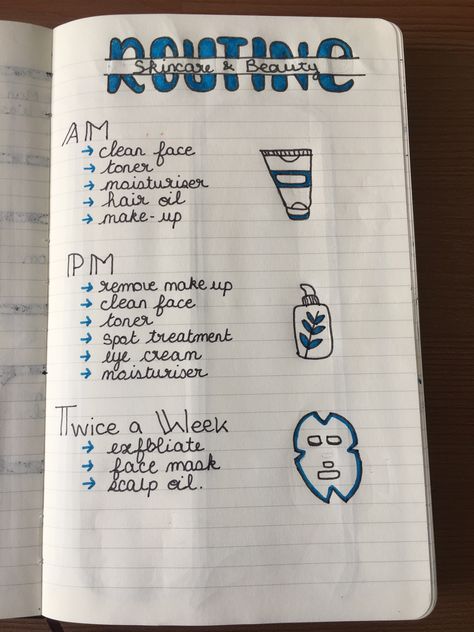 ROUTINE
Skincare & Beauty
AM
→ clean face
→ toner
→ moisturiser
→ hair oil
→ make-up
PM
→ remove make up
→ clean face
→ toner
→ spot treatment
→ eye cream
→ moisturiser
Twice a Week
→ exfoliate
→ face mask
→ scalp oil.